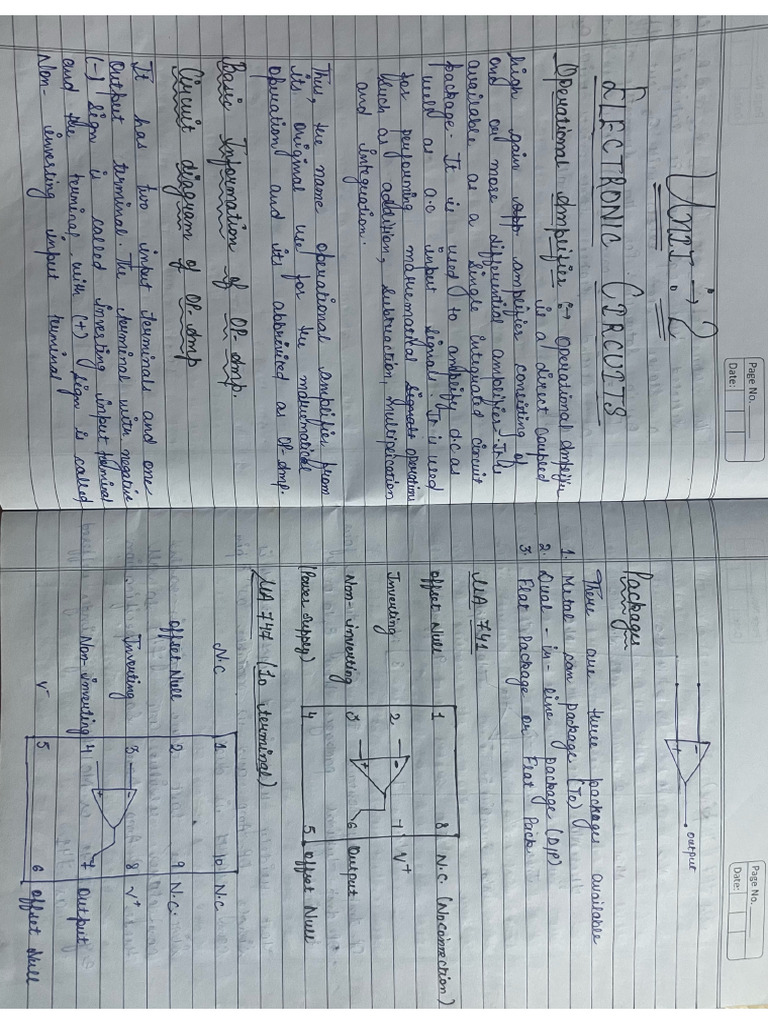 Page No.
Date:
Unit → 2
ELECTRONIC CIRCUITS
Operational Amplifier :→ Operational Amplifier
is a direct coupled
high gain amplifier consisting of
one or more differential amplifier. It is
available as a single integrated circuit
package. It is used to amplify d.c as
well as a.c input signals. It is used
for performing mathematical operation
such as addition, subtraction, multiplication
and integration.
Thus, the name operational amplifier from
its original use for the mathematical
operation and its abbrivited as OP-Amp.
Basic Information of OP-Amp.
Circuit diagram of OP-Amp
It has two input terminals and one
Output terminal. The terminal with negative
(-) sign is called Inverting input terminal
and the terminal with (+) sign is called
Non-inverting input terminal
Page No.
Date:
-
+
output
Packages
There are three packages available
1. Metal can package (To)
2. Dual-in-line package (DIP)
3. Flat Package or Flat Pack.
MA 741
offset Null 1 8 N.C. (No connection)
Inverting 2 - 7 V+
Non-inverting 3 + 6 Output
(Power Supply) 4 5 offset Null
MA 747 (10 terminal)
N.C 1 10 N.C
offset Null 2 9 N.C.
Inverting 3 - 8 V+
Non-inverting 4 + 7 Output
V- 5 6 offset Null